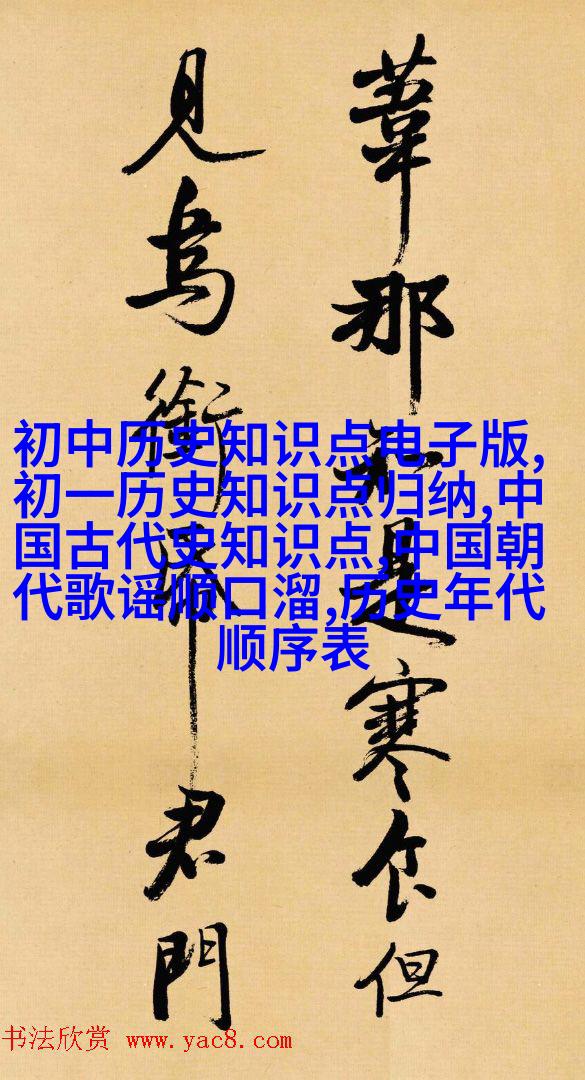 葦那知是寒食但
見烏銜帋君門
初中历史知识点电子版,
初一历史知识点归纳,中
国古代史知识点,中国朝
代歌谣顺口溜,历史年代
顺序表
书法欣赏 www.yac8.com